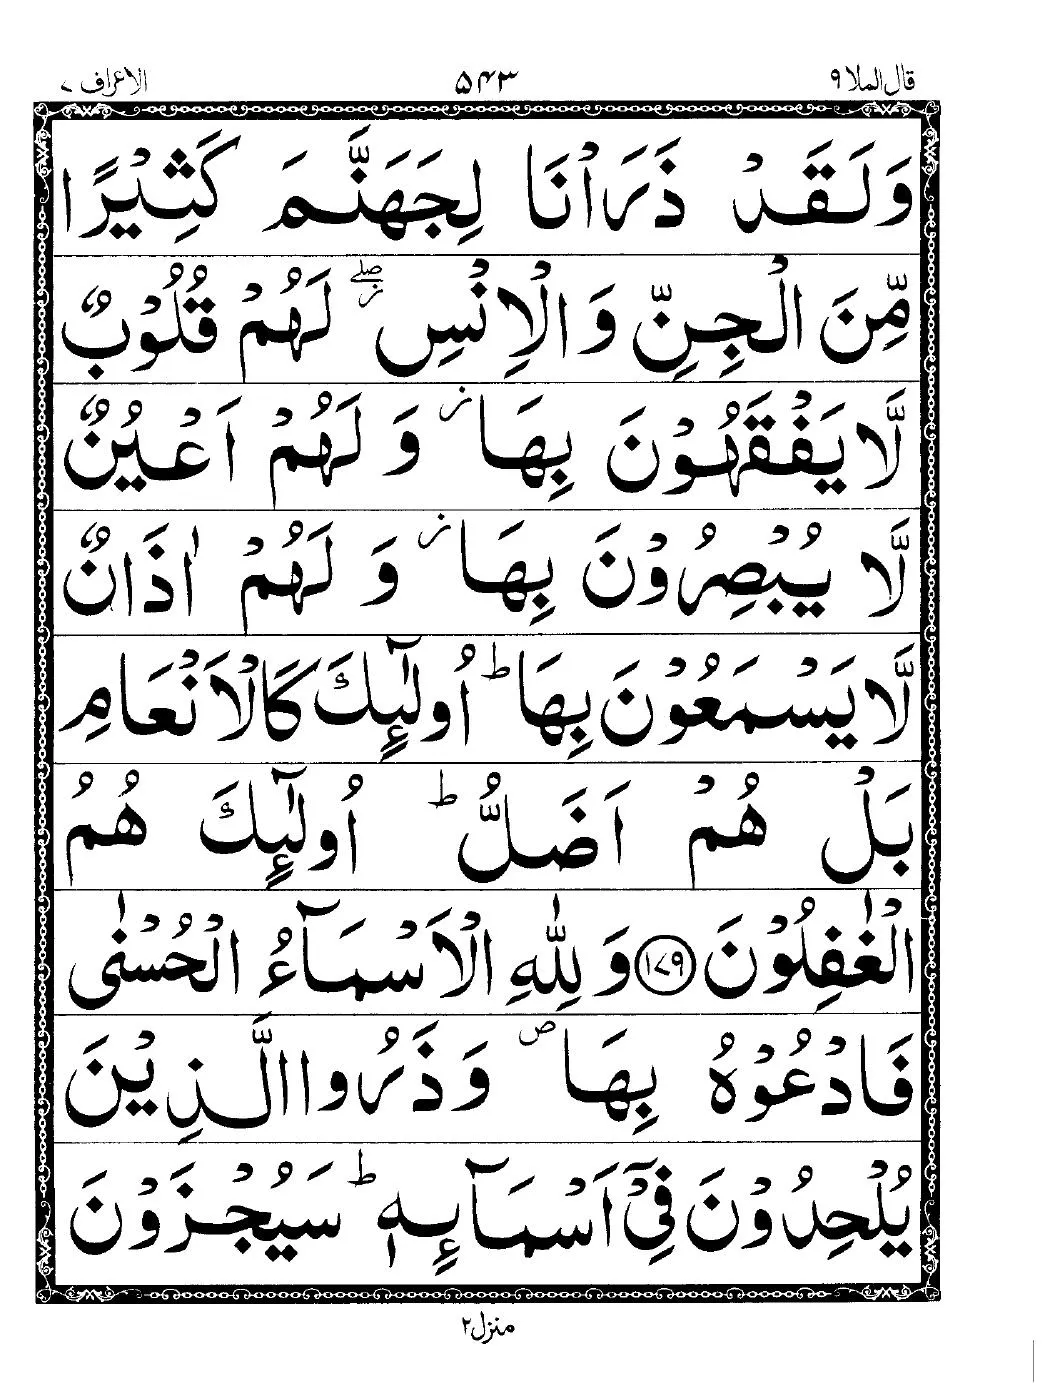 قال الملا ۹ ۵۴۳ الاعراف ۷
وَلَقَدْ ذَرَاْنَا لِجَهَنَّمَ كَثِيْرًا
مِّنَ الْجِنِّ وَالْاِنْسِ ۖز لَهُمْ قُلُوْبٌ
لَّا يَفْقَهُوْنَ بِهَا ز وَلَهُمْ اَعْيُنٌ
لَّا يُبْصِرُوْنَ بِهَا ز وَلَهُمْ اٰذَانٌ
لَّا يَسْمَعُوْنَ بِهَا ؕ اُولٰٓئِكَ كَالْاَنْعَامِ
بَلْ هُمْ اَضَلُّ ؕ اُولٰٓئِكَ هُمُ
الْغٰفِلُوْنَ ﴿۱۷۹﴾ وَلِلّٰهِ الْاَسْمَآءُ الْحُسْنٰى
فَادْعُوْهُ بِهَا ص وَذَرُوا الَّذِيْنَ
يُلْحِدُوْنَ فِيْٓ اَسْمَآئِهٖ ؕ سَيُجْزَوْنَ
منزل ۲